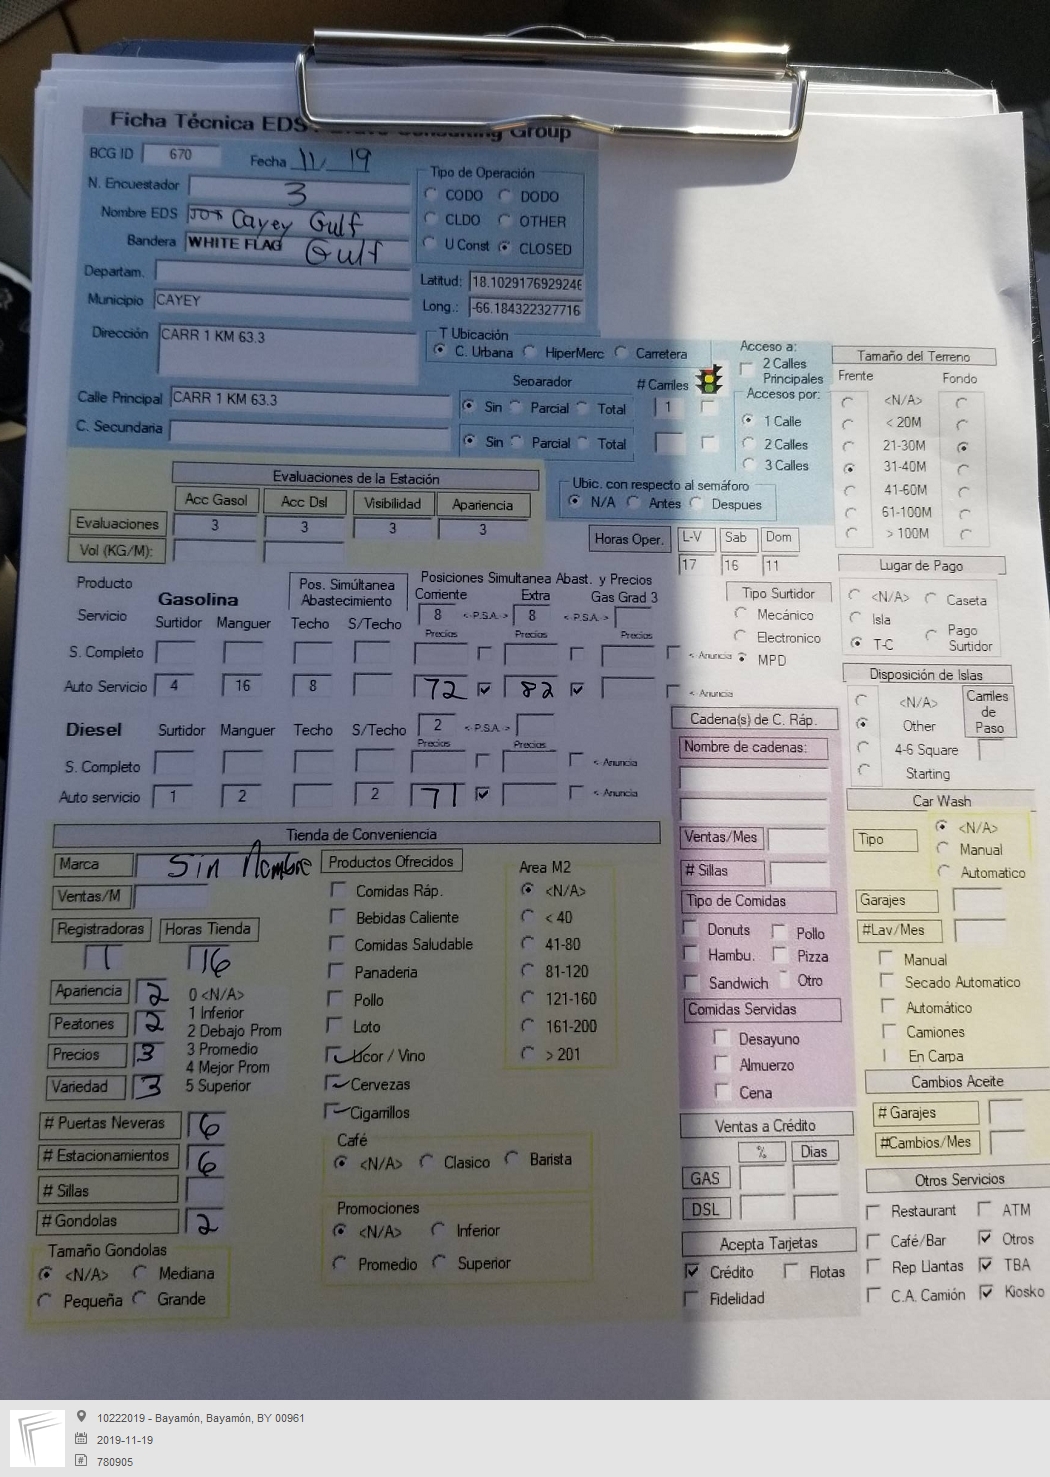 Ficha Técnica EDS Consulting Group
BCG ID 670 Fecha 11/ 19
N. Encuestador 3
Nombre EDS JOS Cayey Gulf
Bandera WHITE FLAG Gulf
Departam.
Municipio CAYEY
Dirección CARR 1 KM 63.3
Calle Principal CARR 1 KM 63.3
C. Secundaria
Tipo de Operación
CODO DODO
CLDO OTHER
U Const CLOSED
Latitud: 18.1029176929246
Long.: -66.184322327716
T Ubicación
C. Urbana HiperMerc Carretera
Separador # Carriles
Sin Parcial Total 1
Sin Parcial Total
Acceso a:
2 Calles Principales
Accesos por:
1 Calle
2 Calles
3 Calles
Ubic. con respecto al semáforo
N/A Antes Despues
Tamaño del Terreno
Frente Fondo
<N/A>
< 20M
21-30M
31-40M
41-60M
61-100M
> 100M
Evaluaciones de la Estación
Acc Gasol Acc Dsl Visibilidad Apariencia
Evaluaciones 3 3 3 3
Vol (KG/M):
Horas Oper. L-V Sab Dom
17 16 11
Lugar de Pago
<N/A> Caseta
Isla
T-C Pago Surtidor
Tipo Surtidor
Mecánico
Electronico
MPD
Producto
Servicio
Gasolina
Pos. Simúltanea Abastecimiento
Posiciones Simultanea Abast. y Precios
Corriente Extra Gas Grad 3
Surtidor Manguer Techo S/Techo 8 <-P.S.A.-> 8 <-P.S.A.->
Precios Precios Precios
S. Completo <- Anuncia
Auto Servicio 4 16 8 72 82 <- Anuncia
Diesel Surtidor Manguer Techo S/Techo 2 <-P.S.A.->
Precios Precios
S. Completo <- Anuncia
Auto servicio 1 2 2 71 <- Anuncia
Disposición de Islas
<N/A>
Other
4-6 Square
Starting
Carriles de Paso
Cadena(s) de C. Ráp.
Nombre de cadenas:
Ventas/Mes
# Sillas
Tipo de Comidas
Donuts Pollo
Hambu. Pizza
Sandwich Otro
Comidas Servidas
Desayuno
Almuerzo
Cena
Car Wash
Tipo
<N/A>
Manual
Automatico
Garajes
#Lav/Mes
Manual
Secado Automatico
Automático
Camiones
En Carpa
Cambios Aceite
# Garajes
#Cambios/Mes
Tienda de Conveniencia
Marca Sin Nombre
Ventas/M
Registradoras Horas Tienda
1 16
Apariencia 2
Peatones 2
Precios 3
Variedad 3
0 <N/A>
1 Inferior
2 Debajo Prom
3 Promedio
4 Mejor Prom
5 Superior
# Puertas Neveras 6
# Estacionamientos 6
# Sillas
# Gondolas 2
Tamaño Gondolas
<N/A> Mediana
Pequeña Grande
Productos Ofrecidos
Comidas Ráp.
Bebidas Caliente
Comidas Saludable
Panaderia
Pollo
Loto
Licor / Vino
Cervezas
Cigarrillos
Area M2
<N/A>
< 40
41-80
81-120
121-160
161-200
> 201
Café
<N/A> Clasico Barista
Promociones
<N/A> Inferior
Promedio Superior
Ventas a Crédito
% Dias
GAS
DSL
Acepta Tarjetas
Crédito Flotas
Fidelidad
Otros Servicios
Restaurant ATM
Café/Bar Otros
Rep Llantas TBA
C.A. Camión Kiosko
10222019 - Bayamón, Bayamón, BY 00961
2019-11-19
780905